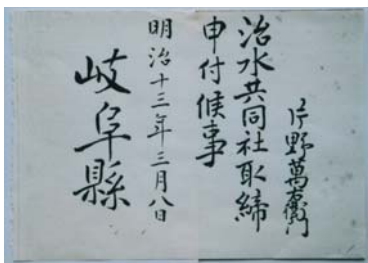 片野萬右衛門
治水共同社取締
申付候事
明治十三年三月八日
岐阜縣